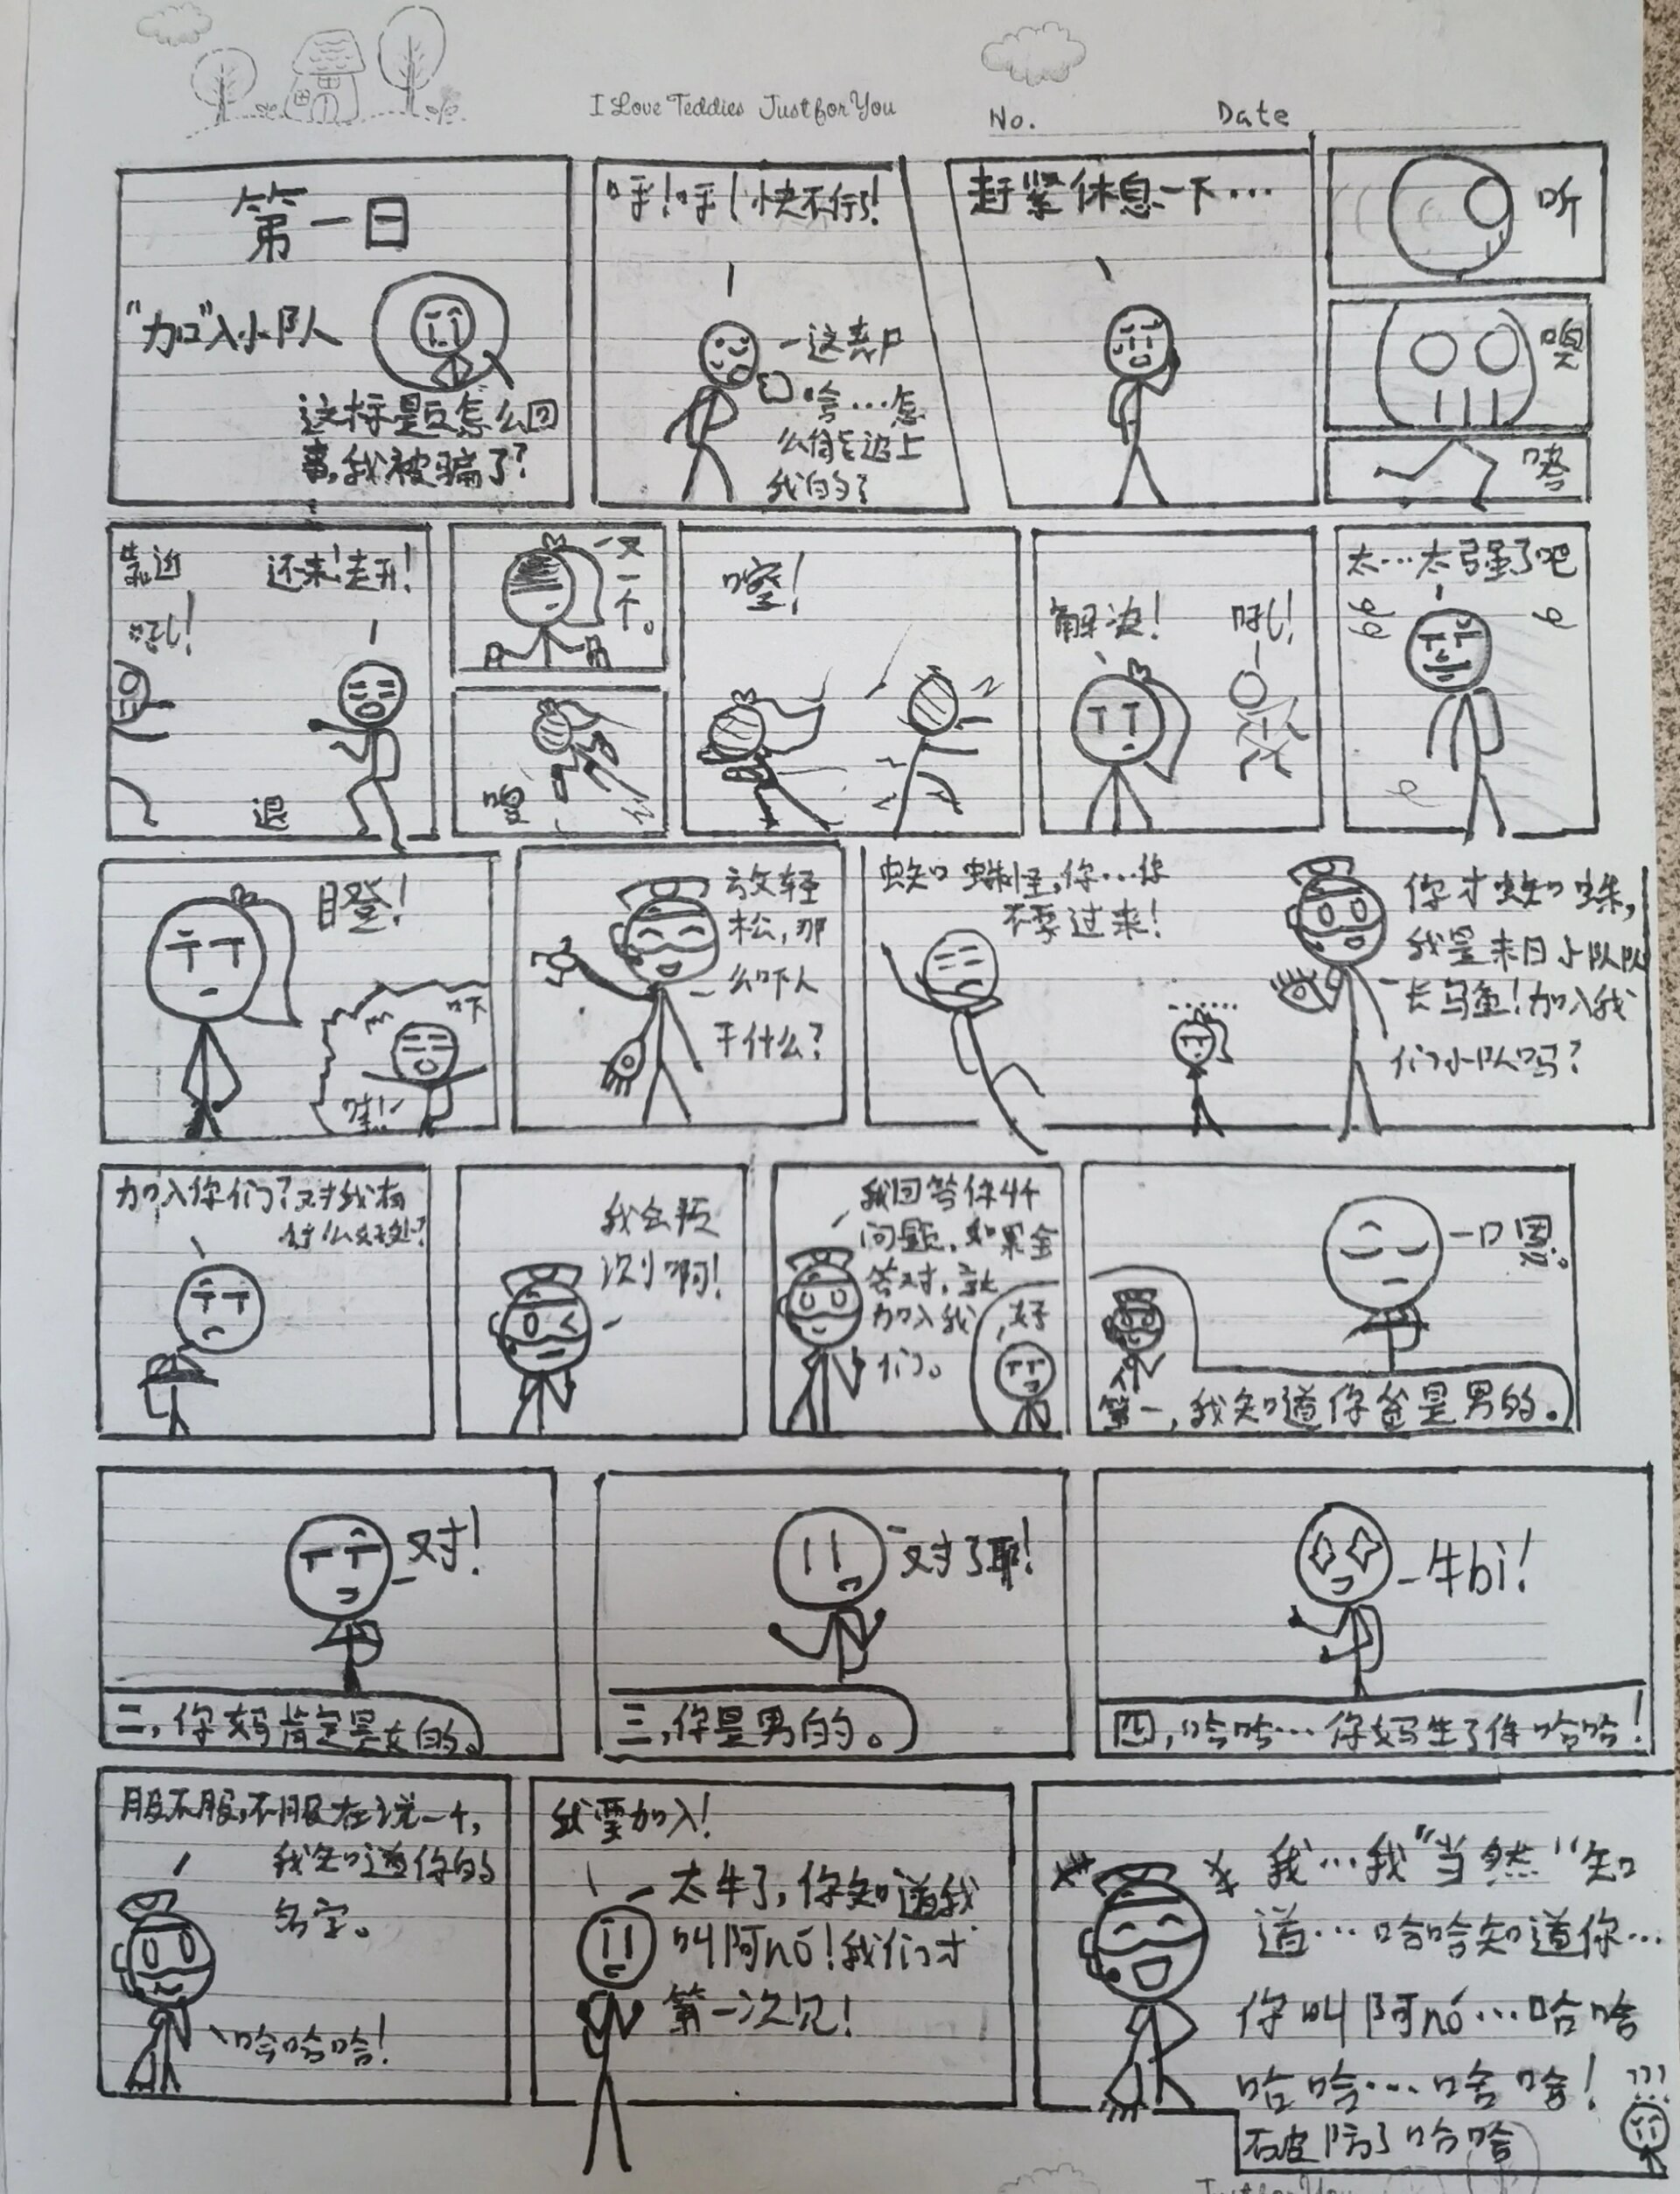 I Love Teddies Just for You
No.
Date
第一日
"加"入小队
这标题怎么回
事,我被骗了?
呼!呼!快不行了!
这丧尸
哈…怎
么能追上
我的?
赶紧休息一下…
听
嗒
靠近
吼!
还来!走开!
退
又
一
个。
解决!
吼!
太…太强了吧
瞪!
吓
哇!!
放轻
松,那
么吓人
干什么?
蜘蛛怪,你…你
不要过来!
……
你才蜘蛛,
我是末日小队队
长乌鱼!加入我
们小队吗?
加入你们?对我有
什么好处?
我会预
言啊!
我回答你4个
问题,如果全
答对,就
加入我
们。
好
嗯。
第一,我知道你爸是男的。
对!
二,你妈肯定是女的。
对了耶!
三,你是男的。
牛bi!
四,哈哈…你妈生了你哈哈!
服不服,不服在说一个,
我知道你的
名字。
哈哈哈!
我要加入!
太牛了,你知道我
叫阿nó!我们才
第一次见!
我…我"当然"知
道…哈哈知道你…
你叫阿nó…哈哈
哈哈…哈哈!
???
破防了哈哈
Just for You